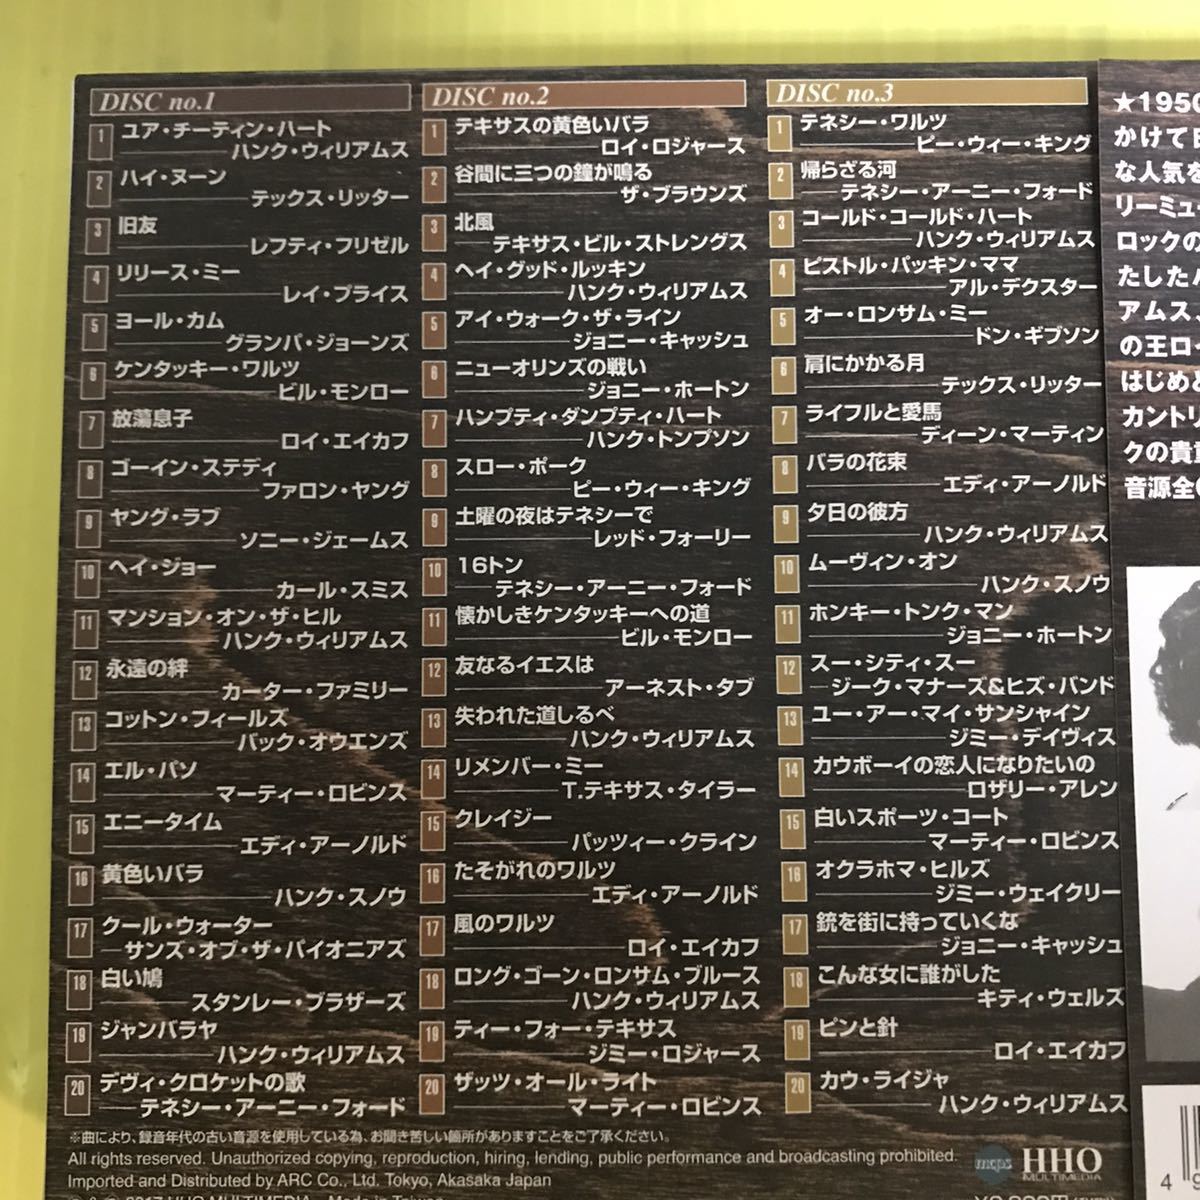 DISC no.1
1 ユア・チーティン・ハート
ハンク・ウィリアムス
2 ハイ・ヌーン
テックス・リッター
3 旧友
レフティ・フリゼル
4 リリース・ミー
レイ・プライス
5 ヨール・カム
グランパ・ジョーンズ
6 ケンタッキー・ワルツ
ビル・モンロー
7 放蕩息子
ロイ・エイカフ
8 ゴーイン・ステディ
ファロン・ヤング
9 ヤング・ラブ
ソニー・ジェームス
10 ヘイ・ジョー
カール・スミス
11 マンション・オン・ザ・ヒル
ハンク・ウィリアムス
12 永遠の絆
カーター・ファミリー
13 コットン・フィールズ
バック・オウエンズ
14 エル・パソ
マーティー・ロビンス
15 エニータイム
エディ・アーノルド
16 黄色いバラ
ハンク・スノウ
17 クール・ウォーター
サンズ・オブ・ザ・パイオニアズ
18 白い鳩
スタンレー・ブラザーズ
19 ジャンバラヤ
ハンク・ウィリアムス
20 デヴィ・クロケットの歌
テネシー・アーニー・フォード
DISC no.2
1 テキサスの黄色いバラ
ロイ・ロジャース
2 谷間に三つの鐘が鳴る
ザ・ブラウンズ
3 北風
テキサス・ビル・ストレングス
4 ヘイ・グッド・ルッキン
ハンク・ウィリアムス
5 アイ・ウォーク・ザ・ライン
ジョニー・キャッシュ
6 ニューオリンズの戦い
ジョニー・ホートン
7 ハンプティ・ダンプティ・ハート
ハンク・トンプソン
8 スロー・ポーク
ピー・ウィー・キング
9 土曜の夜はテネシーで
レッド・フォーリー
10 16トン
テネシー・アーニー・フォード
11 懐かしきケンタッキーへの道
ビル・モンロー
12 友なるイエスは
アーネスト・タブ
13 失われた道しるべ
ハンク・ウィリアムス
14 リメンバー・ミー
T.テキサス・タイラー
15 クレイジー
パッツィー・クライン
16 たそがれのワルツ
エディ・アーノルド
17 風のワルツ
ロイ・エイカフ
18 ロング・ゴーン・ロンサム・ブルース
ハンク・ウィリアムス
19 ティー・フォー・テキサス
ジミー・ロジャース
20 ザッツ・オール・ライト
マーティー・ロビンス
DISC no.3
1 テネシー・ワルツ
ピー・ウィー・キング
2 帰らざる河
テネシー・アーニー・フォード
3 コールド・コールド・ハート
ハンク・ウィリアムス
4 ピストル・パッキン・ママ
アル・デクスター
5 オー・ロンサム・ミー
ドン・ギブソン
6 肩にかかる月
テックス・リッター
7 ライフルと愛馬
ディーン・マーティン
8 バラの花束
エディ・アーノルド
9 夕日の彼方
ハンク・ウィリアムス
10 ムーヴィン・オン
ハンク・スノウ
11 ホンキー・トンク・マン
ジョニー・ホートン
12 スー・シティ・スー
ジーク・マナーズ&ヒズ・バンド
13 ユー・アー・マイ・サンシャイン
ジミー・デイヴィス
14 カウボーイの恋人になりたいの
ロザリー・アレン
15 白いスポーツ・コート
マーティー・ロビンス
16 オクラホマ・ヒルズ
ジミー・ウェイクリー
17 銃を街に持っていくな
ジョニー・キャッシュ
18 こんな女に誰がした
キティ・ウェルズ
19 ピンと針
ロイ・エイカフ
20 カウ・ライジャ
ハンク・ウィリアムス
★1950
かけて
な人気を
リーミュー
ロックの
たした
アムス、
の王ロイ
はじめと
カントリ
クの貴重
音源全
※曲により、録音年代の古い音源を使用している為、お聞き苦しい箇所がありますことをご了承ください。
All rights reserved. Unauthorized copying, reproduction, hiring, lending, public performance and broadcasting prohibited.
Imported and Distributed by ARC Co., Ltd. Tokyo, Akasaka Japan
2017 HHO MULTIMEDIA Made in Taiwan
mcps
HHO
MULTIMEDIA
4 9